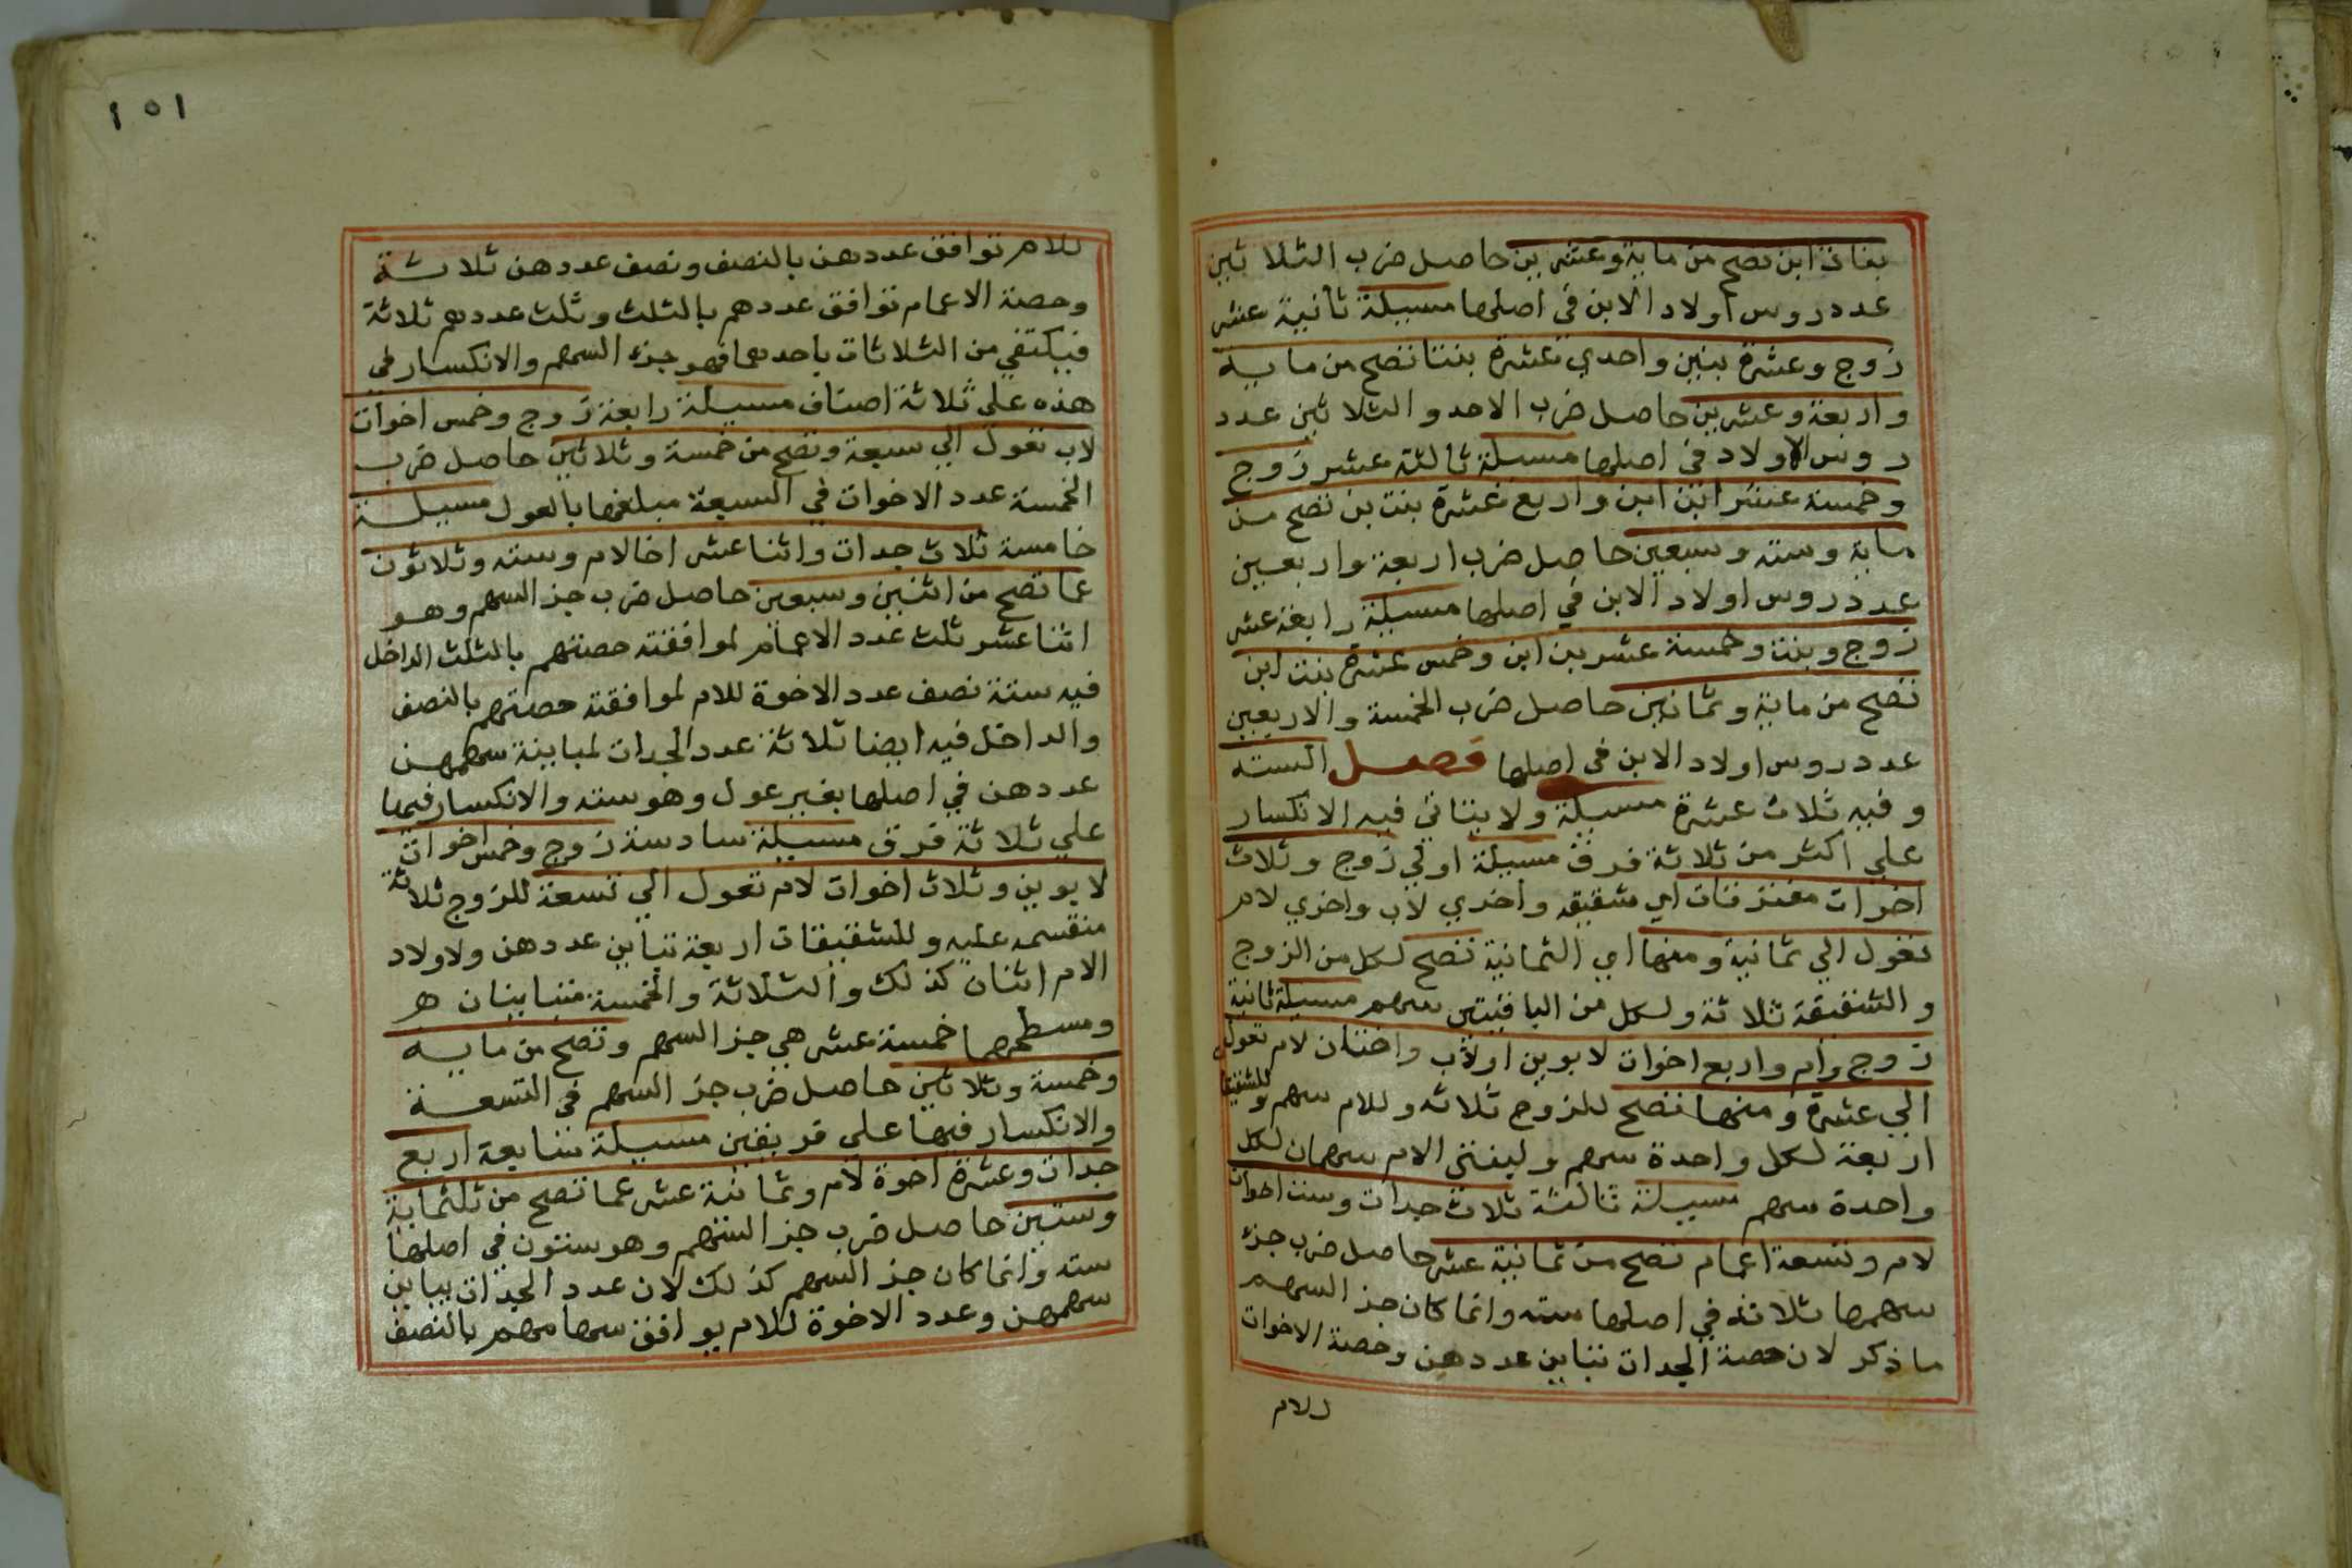 بنات ابن تصح من ماية وعشرين حاصل ضرب الثلاثين
عدد روس اولاد الابن في اصلها مسيلة ثانية عشر
زوج وعشرة بنين واحدي عشرة بنتا تصح من ماية
واربعة وعشرين حاصل ضرب الاحد والثلاثين عدد
روس الاولاد في اصلها مسيلة ثالثة عشر زوج
وخمسة عشر ابن ابن واربع عشرة بنت بن تصح من
ماية وسته وسبعين حاصل ضرب اربعة واربعين
عدد روس اولاد الابن في اصلها مسيلة رابعة عشر
زوج وبنت وخمسة عشر بن ابن وخمس عشرة بنت ابن
تصح من ماية وثمانين حاصل ضرب الخمسة والاربعين
عدد روس اولاد الابن في اصلها فصل السته
وفيه ثلاث عشرة مسيلة ولا يتاتي فيه الانكسار
علي اكثر من ثلاثة فرق مسيلة اولي زوج وثلاث
اخوات مفترقات اي شقيقه واخري لاب واخري لام
تعول الي ثمانية ومنها اي الثمانية تصح لكل من الزوج
والشقيقة ثلاثة ولكل من الباقيتين سهم مسيلة ثانية
زوج وام واربع اخوات لابوين اولاب واختان لام تعول
الي عشرة ومنها تصح للزوج ثلاثه وللام سهم وللشقيقات
اربعة لكل واحدة سهم وليفتي الام سهمان لكل
واحدة سهم مسيلة ثالثة ثلاث جدات وست اخوات
لام وتسعة اعمام تصح من ثمانية عشر حاصل ضرب جزء
سهمها ثلاثه في اصلها سته وانما كان جز السهم
ما ذكر لان حصة الجدات تباين عددهن وحصة الاخوات
للام
١٥١
للام توافق عددهن بالنصف ونصف عددهن ثلاثة
وحصة الاعمام توافق عددهم بالثلث وثلث عددهم ثلاثة
فيكتفي من الثلاثات باحدهما فهو جزء السهم والانكسار في
هذه علي ثلاثة اصناف مسيلة رابعة زوج وخمس اخوات
لاب تعول الي سبعة وتصح من خمسة وثلاثين حاصل ضرب
الخمسة عدد الاخوات في السبعة مبلغها بالعول مسيلة
خامسة ثلاث جدات واثنا عشر اخا لام وسته وثلاثون
عما تصح من اثنين وسبعين حاصل ضرب جز السهم وهو
اثنا عشر ثلث عدد الاعمام لموافقته حصتهم بالثلث الداخل
فيه ستة نصف عدد الاخوة للام لموافقته حصتهم بالنصف
والداخل فيه ايضا ثلاثة عدد الجدات لمباينة سهمهن
عددهن في اصلها بغير عول وهو سته والانكسار فيها
علي ثلاثة فرق مسيلة سادسة زوج وخمس اخوات
لابوين وثلاث اخوات لام تعول الي تسعة للزوج ثلاثة
منقسمه عليه وللشقيقات اربعة تباين عددهن ولاولاد
الام اثنان كذلك والثلاثة والخمسة متباينان هـ
ومسطحهما خمسة عشر هي جز السهم وتصح من ماية
وخمسة وثلاثين حاصل ضرب جز السهم في التسعة
والانكسار فيها علي فريقين مسيلة سابعة اربع
جدات وعشرة اخوة لام وثمانية عشر عما تصح من ثلثماية
وستين حاصل ضرب جز السهم وهو ستون في اصلها
سته وانما كان جز السهم كذلك لان عدد الجدات يباين
سهمهن وعدد الاخوة للام يوافق سهامهم بالنصف